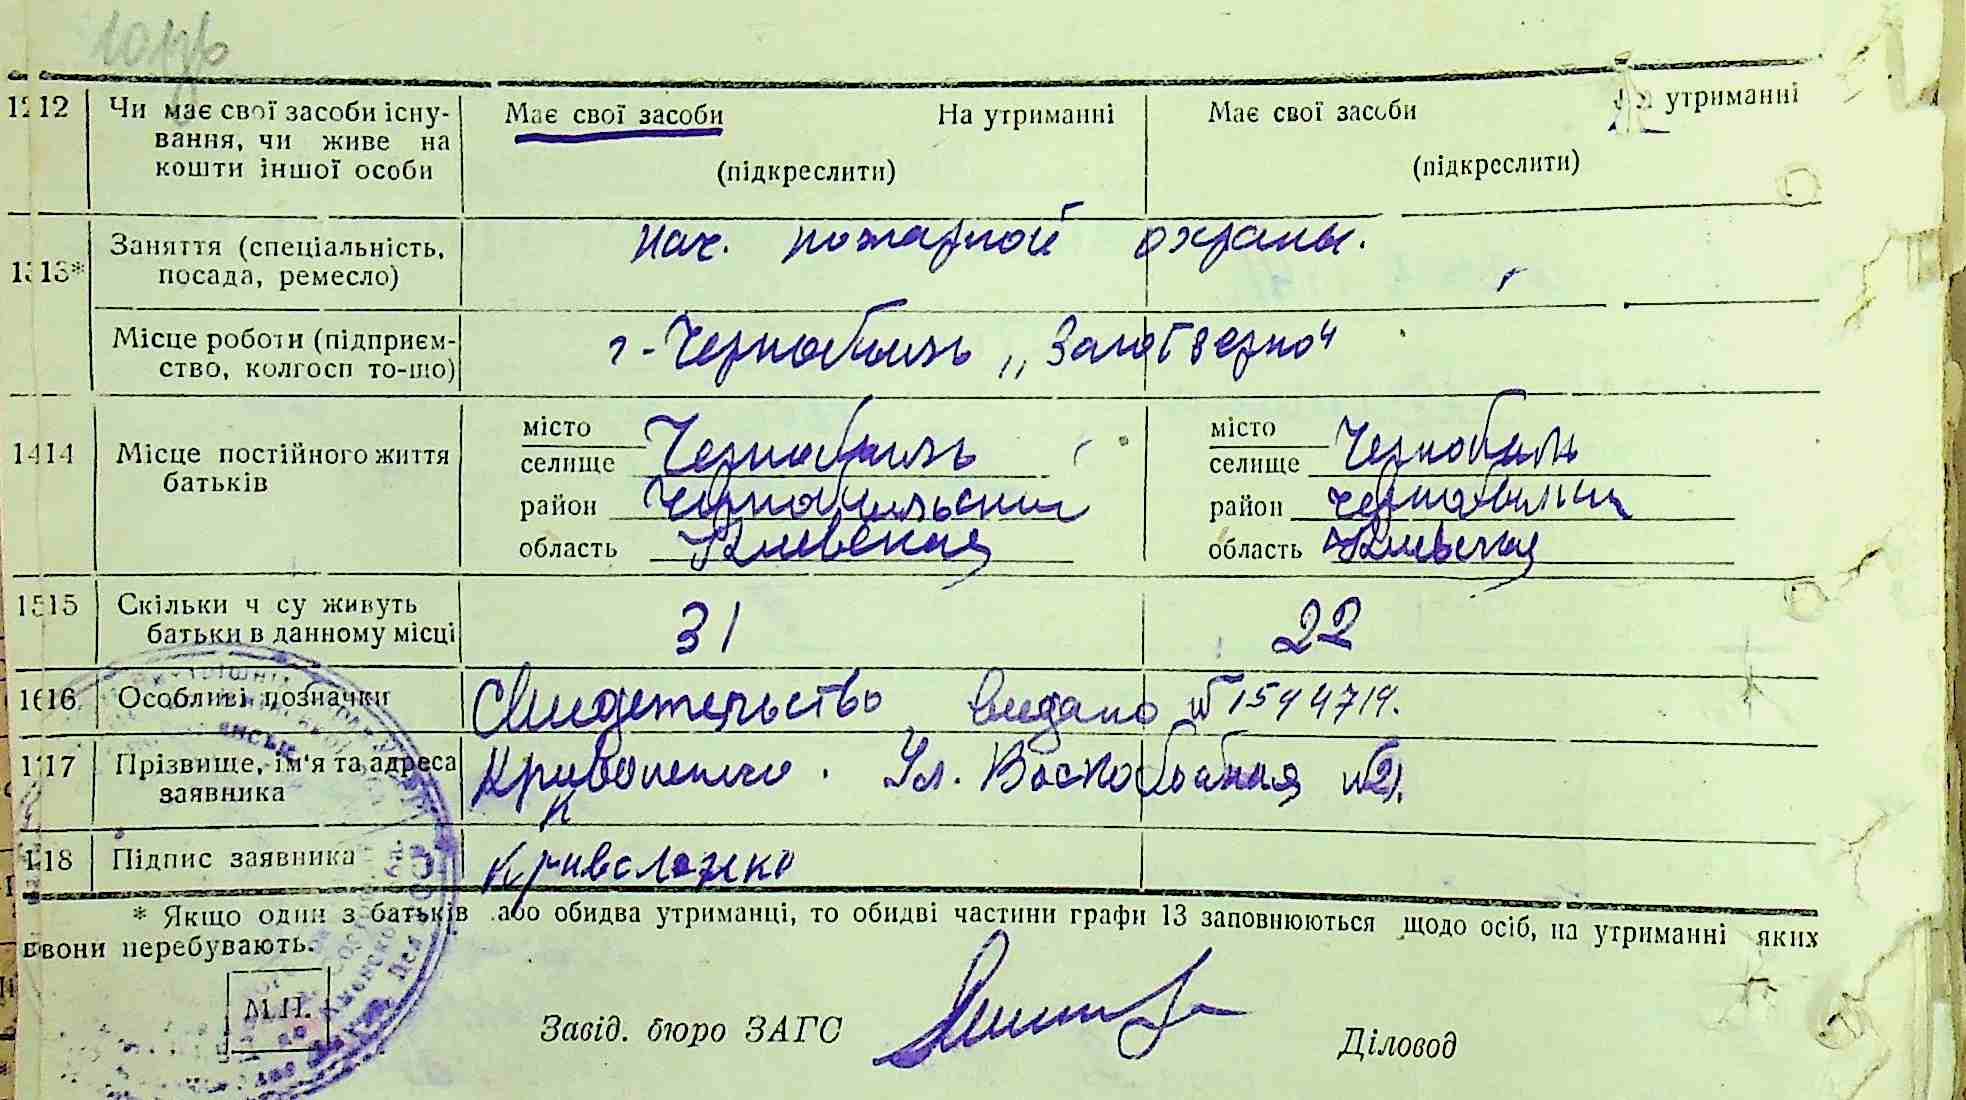 12 12 Чи має свої засоби існу- Має свої засоби На утриманні Має свої засоби утриманні
вання, чи живе на
кошти іншої особи (підкреслити) (підкреслити)
Заняття (спеціальність, нач. пожарной охраны.
13 13* посада, ремесло)
Місце роботи (підприєм- г. Чернобыль „Заготзерно"
ство, колгосп то-що)
місто Чернобыль місто Чернобыль
14 14 Місце постійного життя селище селище
батьків район Чернобыльский район
область Киевская область Киевская
15 15 Скільки ч су живуть 31 22
батьки в данному місці
16 16 Особливі позначки Свидетельство выдано № 1544714.
17 17 Прізвище, ім'я та адреса Ул. №21.
заявника
18 18 Підпис заявника
* Якщо один з батьків або обидва утриманці, то обидві частини графи 13 заповнюються щодо осіб, на утриманні яких
вони перебувають.
М.П.
Завід. бюро ЗАГС Діловод